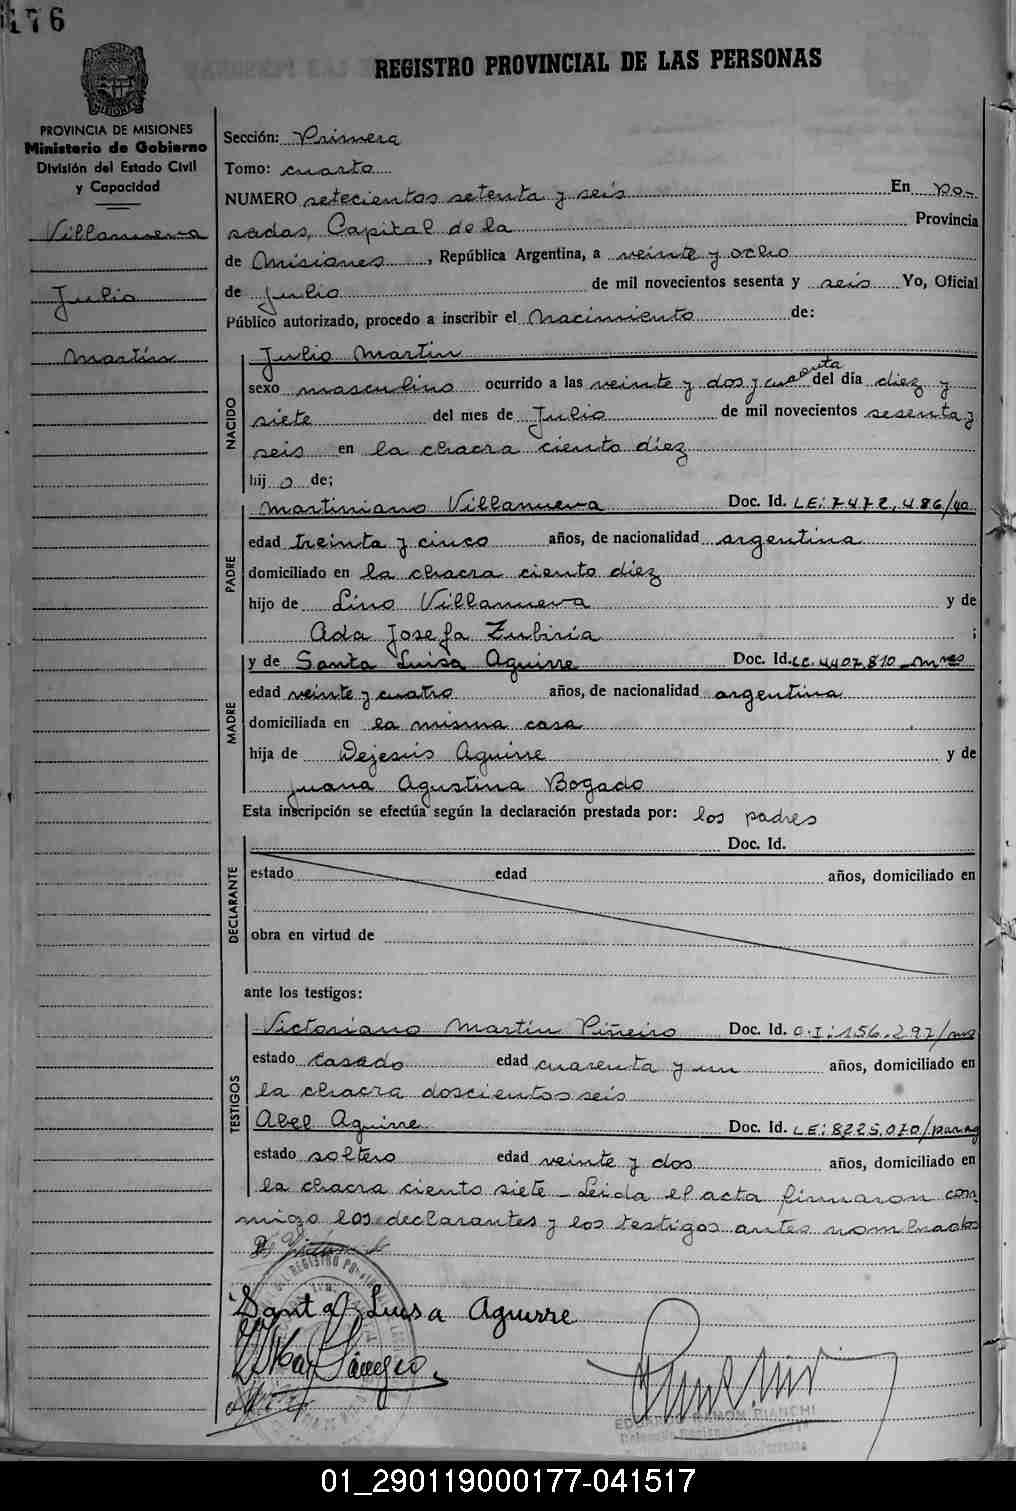 176
REGISTRO PROVINCIAL DE LAS PERSONAS
PROVINCIA DE MISIONES
Ministerio de Gobierno
División del Estado Civil
y Capacidad
Villanueva
Julio
Martín
Sección: Primera
Tomo: cuarto
NUMERO setecientos setenta y seis En Po-
sadas, Capital de la Provincia
de Misiones, República Argentina, a veinte y ocho
de Julio de mil novecientos sesenta y seis Yo, Oficial
Público autorizado, procedo a inscribir el Nacimiento de:
NACIDO
Julio Martín
sexo masculino ocurrido a las veinte y dos y cuarenta del día diez y
siete del mes de Julio de mil novecientos sesenta y
seis en la chacra ciento diez
hijo de;
PADRE
Martiniano Villanueva Doc. Id. LE: 7472.486/
edad treinta y cinco años, de nacionalidad argentina
domiciliado en la chacra ciento diez
hijo de Lino Villanueva y de
Ada Josefa Zubiría ;
MADRE
y de Santa Luisa Aguirre Doc. Id. LC. 4407.810
edad veinte y cuatro años, de nacionalidad argentina
domiciliada en la misma casa
hija de Dejesús Aguirre y de
Juana Agustina Bogado
Esta inscripción se efectúa según la declaración prestada por: los padres
DECLARANTE
Doc. Id.
estado edad años, domiciliado en
obra en virtud de
ante los testigos:
TESTIGOS
Victoriano Martín Piñeiro Doc. Id. C.I: 156.297/
estado casado edad cuarenta y un años, domiciliado en
la chacra doscientos seis
Abel Aguirre Doc. Id. LE: 8225.070/
estado soltero edad veinte y dos años, domiciliado en
la chacra ciento siete – Leida el acta firmaron con-
migo los declarantes y los testigos antes nombrados
Santa Luisa Aguirre
EDUARDO RAMON BIANCHI
01_290119000177-041517